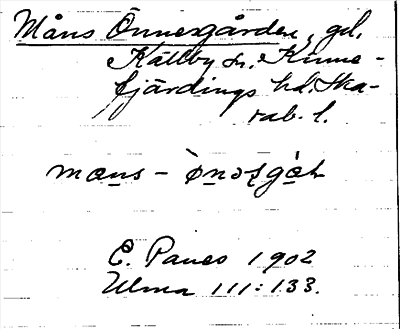 Måns Önnesgården, gd,
Källby sn. Kinne-
fjärdings hd. Ska-
rab. l.
E. Paues 1902
Ulma 111:133.